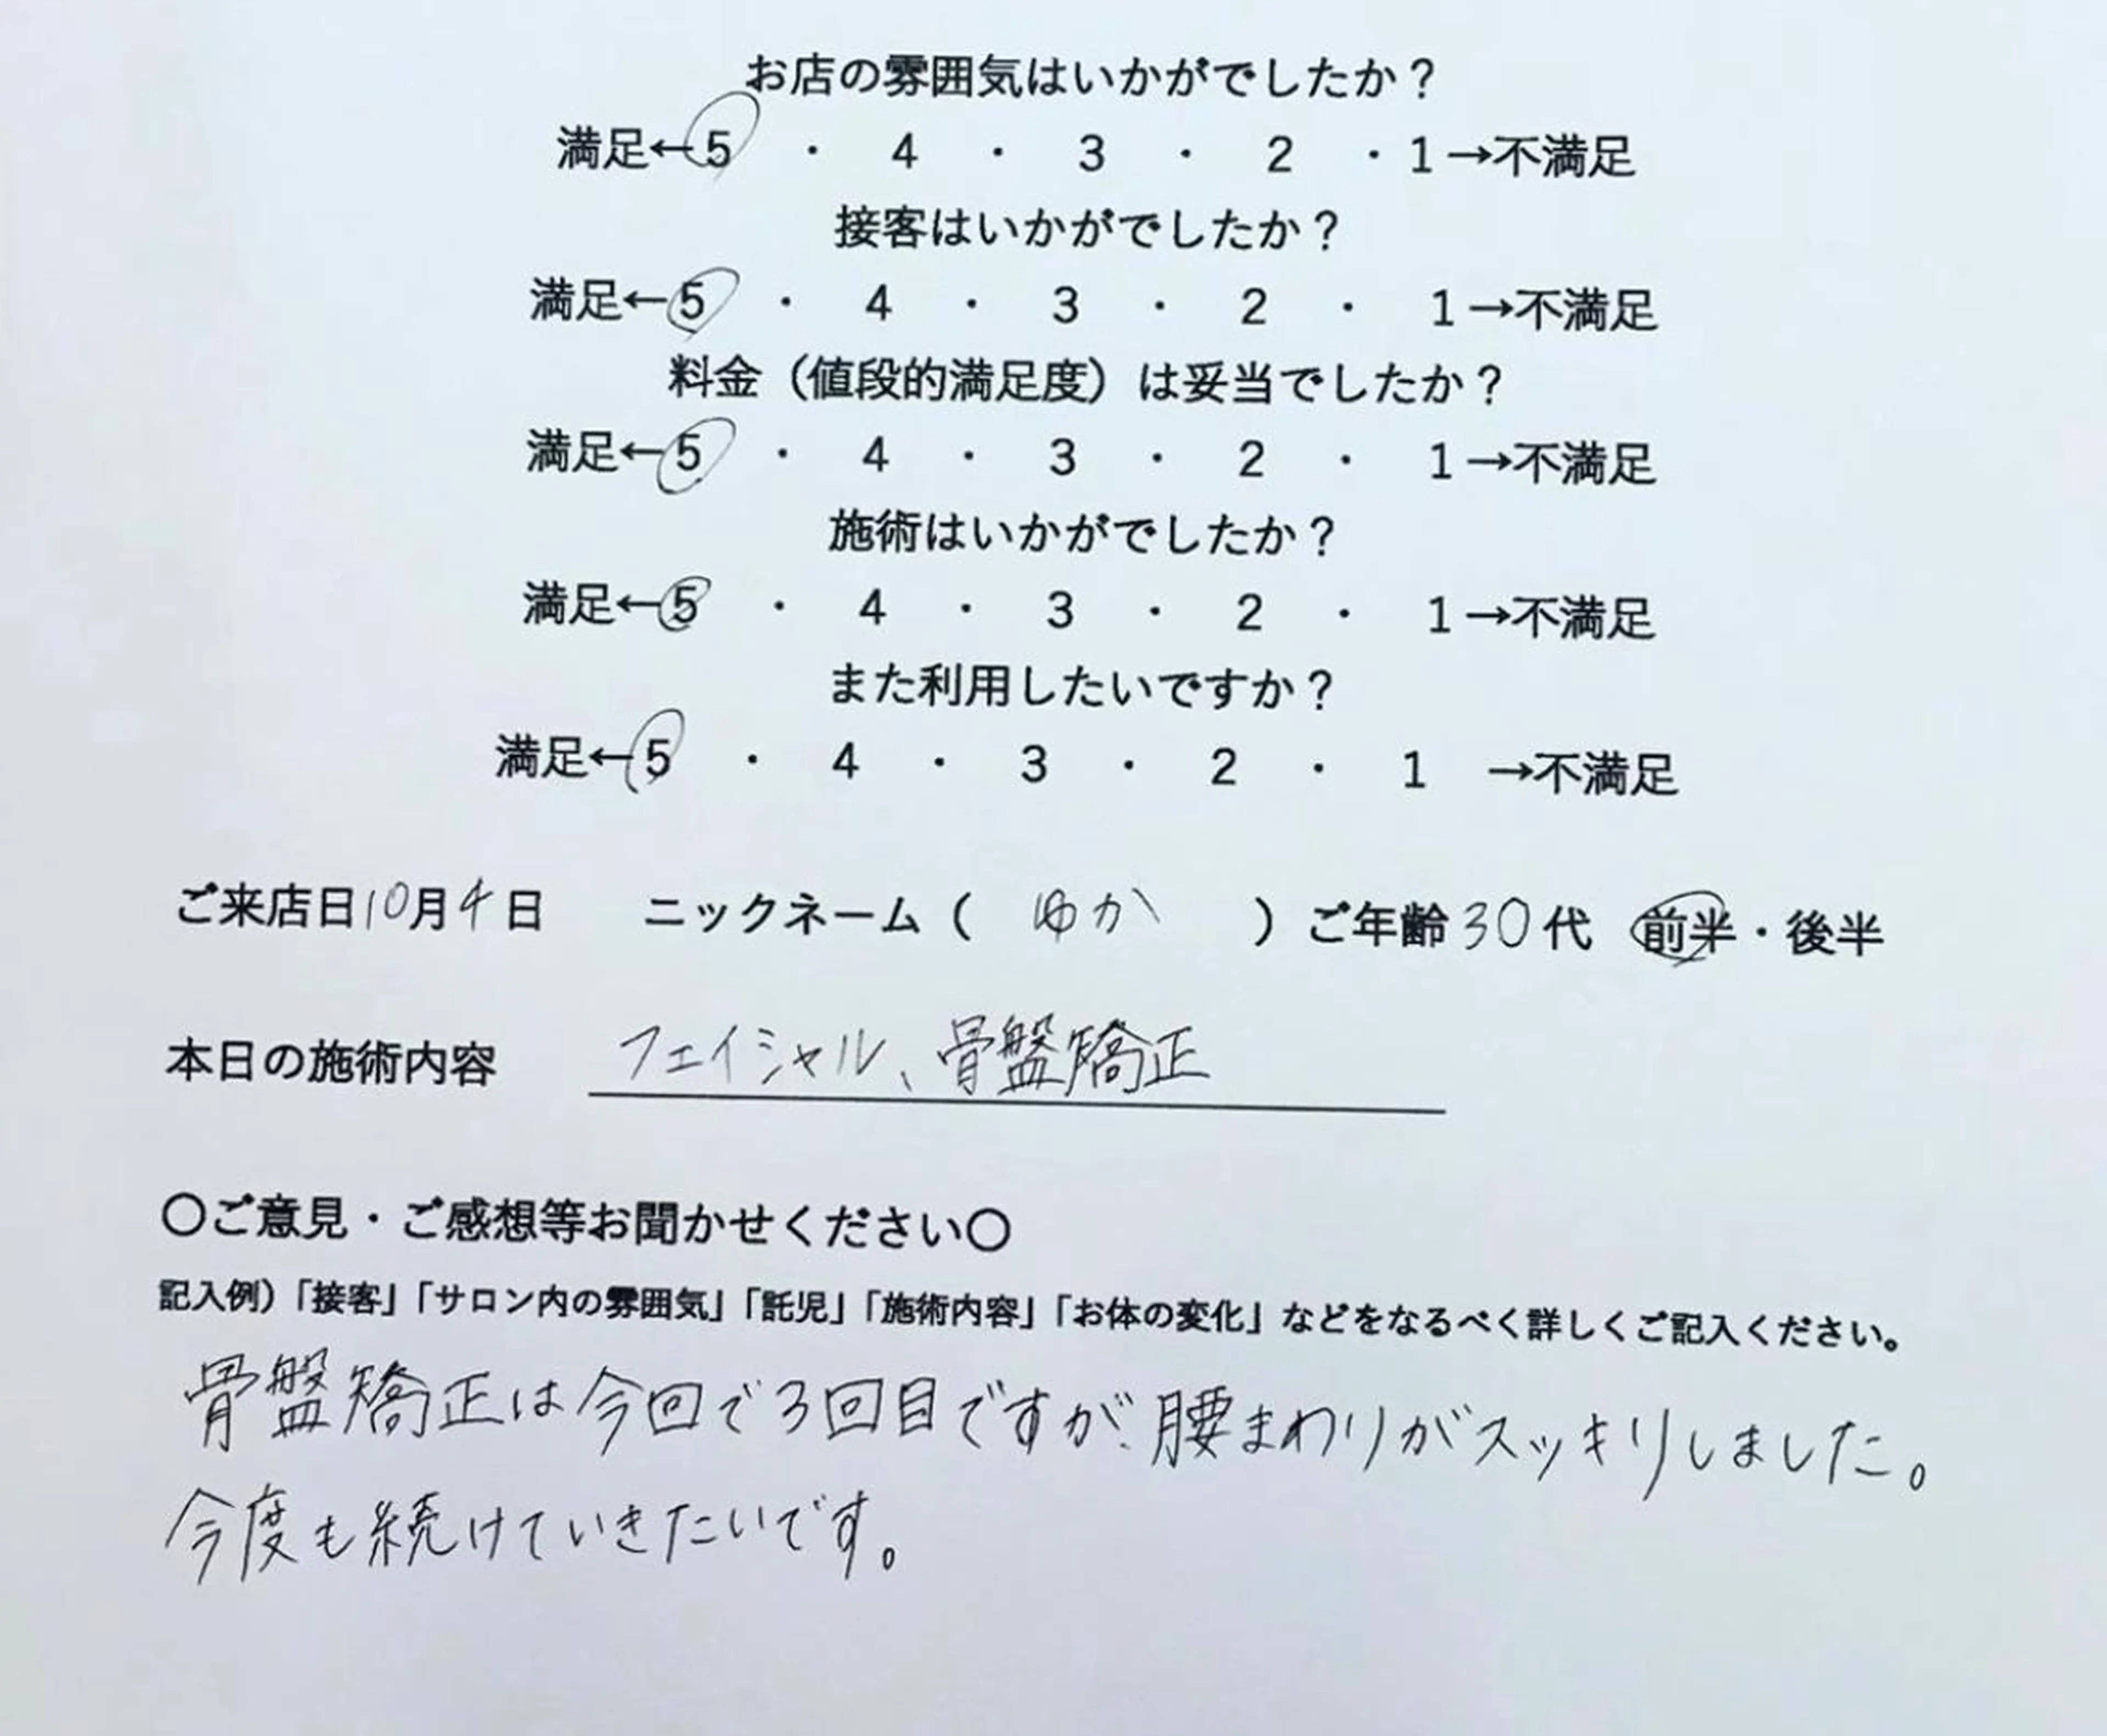 お店の雰囲気はいかがでしたか？
満足←5 ・ 4 ・ 3 ・ 2 ・1→不満足
接客はいかがでしたか？
満足←5 ・ 4 ・ 3 ・ 2 ・ 1→不満足
料金（値段的満足度）は妥当でしたか？
満足←5 ・ 4 ・ 3 ・ 2 ・ 1→不満足
施術はいかがでしたか？
満足←5 ・ 4 ・ 3 ・ 2 ・ 1→不満足
また利用したいですか？
満足←5 ・ 4 ・ 3 ・ 2 ・ 1 →不満足
ご来店日10月4日 ニックネーム（ ゆか ）ご年齢30代 前半・後半
本日の施術内容 フェイシャル、骨盤矯正
〇ご意見・ご感想等お聞かせください〇
記入例）「接客」「サロン内の雰囲気」「託児」「施術内容」「お体の変化」などをなるべく詳しくご記入ください。
骨盤矯正は今回で3回目ですが、腰まわりがスッキリしました。
今度も続けていきたいです。